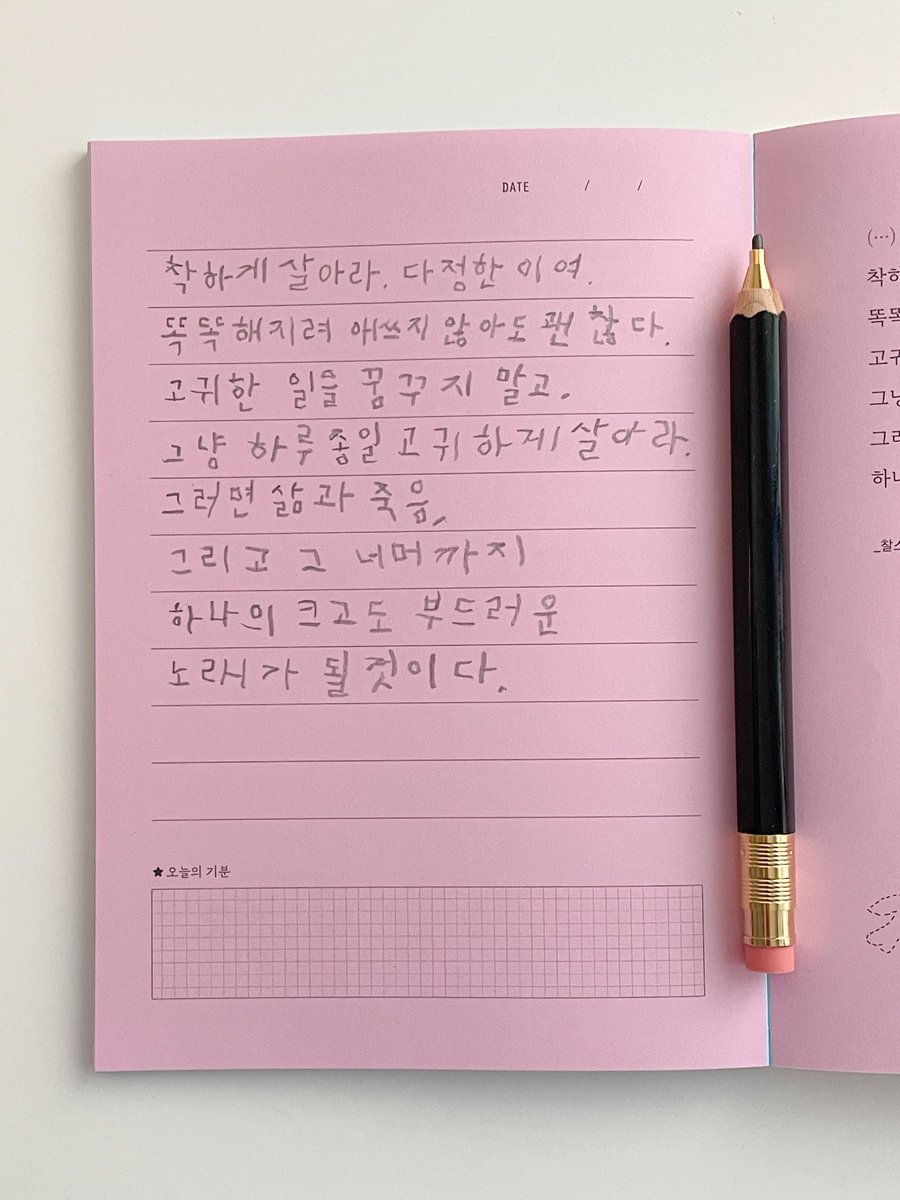 DATE / /
착하게 살아라, 다정한 이여.
똑똑해지려 애쓰지 않아도 괜찮다.
고귀한 일을 꿈꾸지 말고,
그냥 하루종일 고귀하게 살아라.
그러면 삶과 죽음,
그리고 그 너머까지
하나의 크고도 부드러운
노래가 될 것이다.
★ 오늘의 기분
(…)
착하
똑똑
고귀
그냥
그러
하나
_찰스